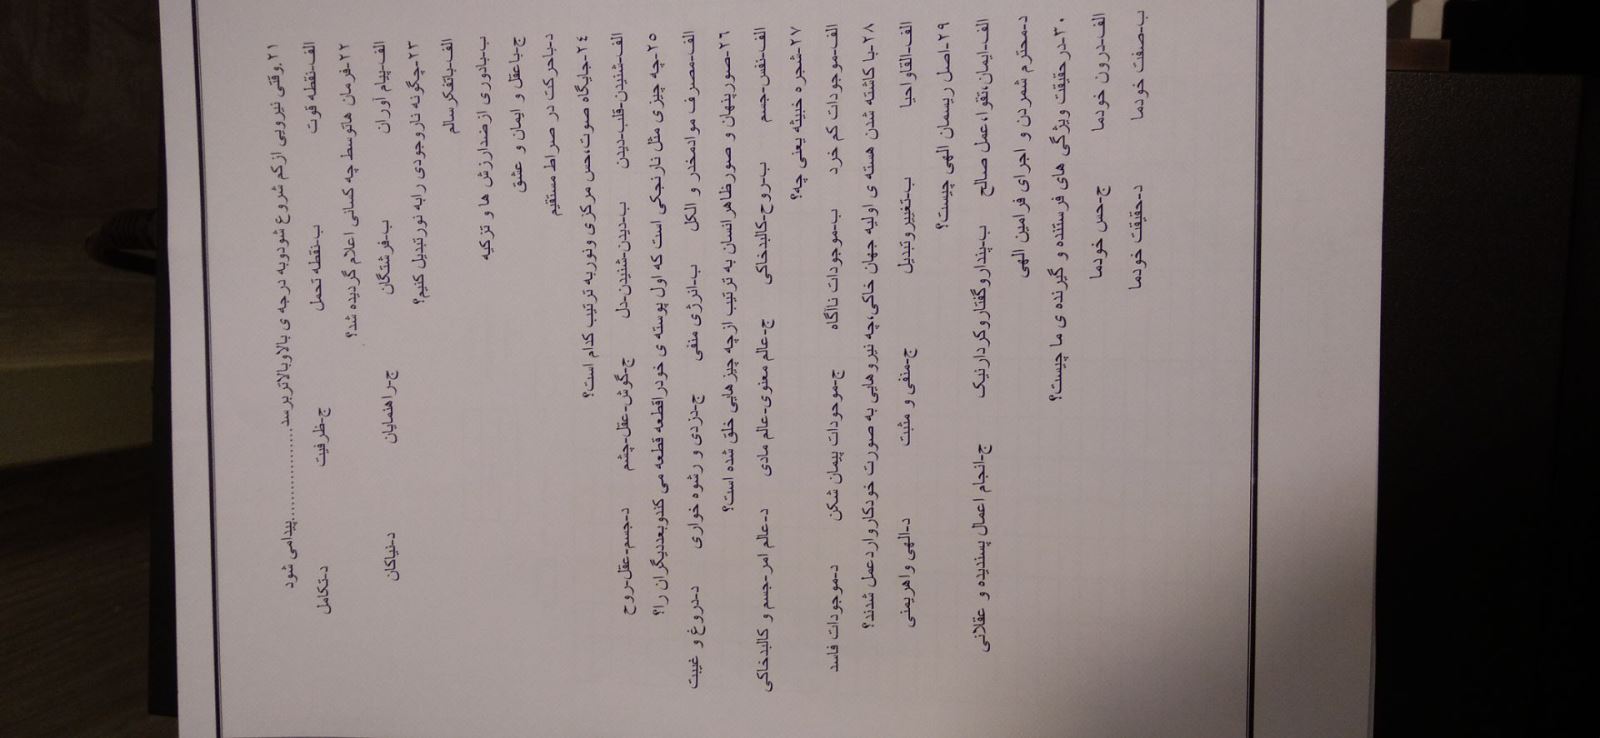 ۲۱.وقتی نیرویی ازکم شروع شودوبه درجه ی بالاوبالاتربرسد......................پیدامی شود
الف-نقطه قوت ب-نقطه تحمل ج-ظرفیت د-تکامل
۲۲-فرمان هاتوسط چه کسانی اعلام گردیده شد؟
الف-پیام آوران ب-فرشتگان ج-راهنمایان د-نیاکان
۲۳-چگونه ناروجودی رابه نورتبدیل کنیم؟
الف-باتفکرسالم
ب-بادوری ازضدارزش ها و تزکیه
ج-باعقل و ایمان و عشق
د-باحرکت در صراط مستقیم
۲۴-جایگاه صوت،حس مرکزی ونوربه ترتیب کدام است؟
الف-شنیدن-قلب-دیدن ب-دیدن-شنیدن-دل ج-گوش-عقل-چشم د-جسم-عقل-روح
۲۵-چه چیزی مثل نارنجکی است که اول پوسته ی خودراقطعه قطعه می کندوبعددیگران را؟
الف-مصرف موادمخدر و الکل ب-انرژی منفی ج-دزدی و رشوه خواری د-دروغ و غیبت
۲۶-صورپنهان و صورظاهرانسان به ترتیب ازچه چیزهایی خلق شده است؟
الف-نفس-جسم ب-روح-کالبدخاکی ج-عالم معنوی-عالم مادی د-عالم امر-جسم و کالبدخاکی
۲۷-شجره خبیثه یعنی چه؟
الف-موجودات کم خرد ب-موجودات ناآگاه ج-موجودات پیمان شکن د-موجودات فاسد
۲۸-با کاشته شدن هسته ی اولیه جهان خاکی،چه نیروهایی به صورت خودکارواردعمل شدند؟
الف-القاواحیا ب-تغییروتبدیل ج-منفی و مثبت د-الهی واهریمنی
۲۹-اصل ریسمان الهی چیست؟
الف-ایمان،تقوا،عمل صالح ب-پنداروگفتاروکردارنیک ج-انجام اعمال پسندیده و عقلانی
د-محترم شمردن و اجرای فرامین الهی
۳۰-درحقیقت ویژگی های فرستنده و گیرنده ی ما چیست؟
الف-درون خودما ج-حس خودما
ب-صفت خودما د-حقیقت خودما